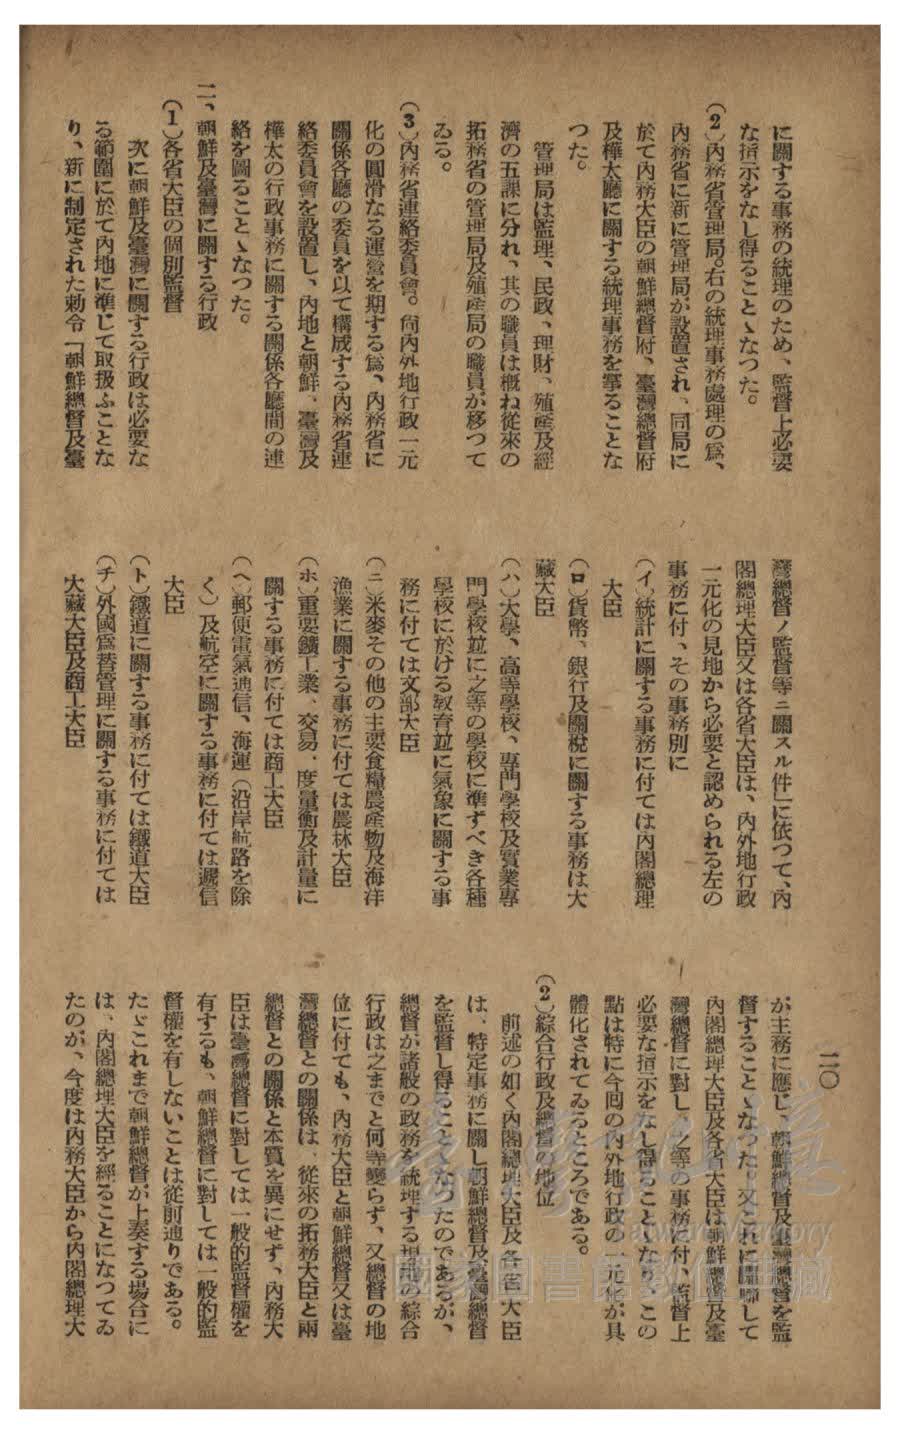 に關する事務の統理のため、監督上必要
な指示をなし得ることゝなつた。
(2)內務省管理局。右の統理事務處理の爲、
內務省に新に管理局が設置され、同局に
於て內務大臣の朝鮮總督府、臺灣總督府
及樺太廳に關する統理事務を掌ることな
つた。
管理局は監理、民政、理財、殖產及經
濟の五課に分れ、其の職員は概ね從來の
拓務省の管理局及殖產局の職員が移つて
ゐる。
(3)內務省連絡委員會。尙內外地行政一元
化の圓滑なる運營を期する爲、內務省に
關係各廳の委員を以て構成する內務省連
絡委員會を設置し、內地と朝鮮、臺灣及
樺太の行政事務に關する關係各廳間の連
絡を圖ることゝなつた。
二、朝鮮及臺灣に關する行政
(1)各省大臣の個別監督
次に朝鮮及臺灣に關する行政は必要な
る範圍に於て內地に準じて取扱ふことな
り、新に制定された勅令「朝鮮總督及臺
灣總督ノ監督等ニ關スル件」に依つて、內
閣總理大臣又は各省大臣は、內外地行政
一元化の見地から必要と認められる左の
事務に付、その事務別に
(イ)統計に關する事務に付ては內閣總理
大臣
(ロ)貨幣、銀行及關稅に關する事務は大
藏大臣
(ハ)大學、高等學校、專門學校及實業專
門學校並に之等の學校に準ずべき各種
學校に於ける敎育並に氣象に關する事
務に付ては文部大臣
(ニ)米麥その他の主要食糧農產物及海洋
漁業に關する事務に付ては農林大臣
(ホ)重要鑛工業、交易、度量衡及計量に
關する事務に付ては商工大臣
(ヘ)郵便電氣通信、海運(沿岸航路を除
く)及航空に關する事務に付ては遞信
大臣
(ト)鐵道に關する事務に付ては鐵道大臣
(チ)外國爲替管理に關する事務に付ては
大藏大臣及商工大臣
が主務に應じ、朝鮮總督及臺灣總督を監
督することゝなつた。又これに關聯して
內閣總理大臣及各省大臣は朝鮮總督及臺
灣總督に對し、之等の事務に付、監督上
必要な指示をなし得ることゝなり、この
點は特に今囘の內外地行政の一元化が具
體化されてゐるところである。
(2)綜合行政及總督の地位
前述の如く內閣總理大臣及各省大臣
は、特定事務に關し朝鮮總督及臺灣總督
を監督し得ることゝなつたのであるが、
總督が諸般の政務を統理する現地の綜合
行政は之までと何等變らず、又總督の地
位に付ても、內務大臣と朝鮮總督又は臺
灣總督との關係は、從來の拓務大臣と兩
總督との關係と本質を異にせず、內務大
臣は臺灣總督に對しては一般的監督權を
有するも、朝鮮總督に對しては一般的監
督權を有しないことは從前通りである。
たゞこれまで朝鮮總督が上奏する場合に
は、內閣總理大臣を經ることになつてゐ
たのが、今度は內務大臣から內閣總理大
二〇
Taiwan Memory
國家圖書館數位典藏